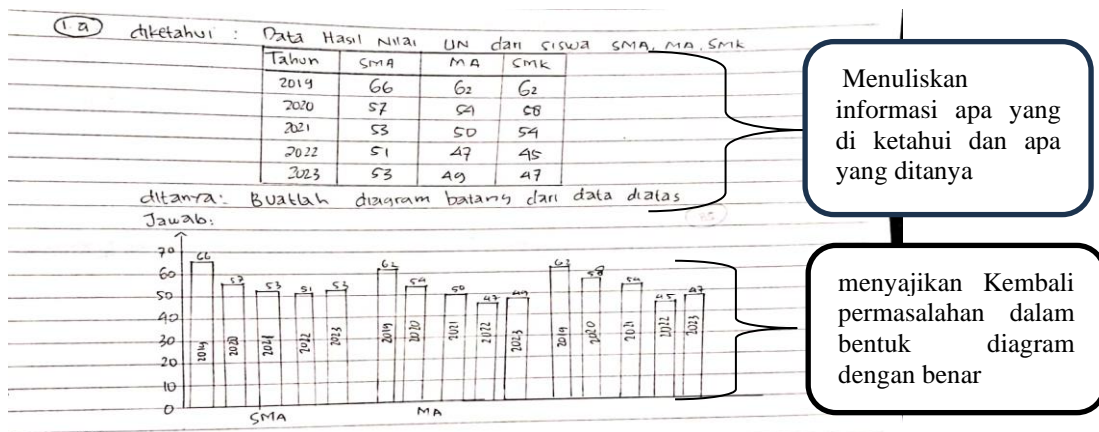 1.a diketahui : Data Hasil Nilai UN dari siswa SMA, MA, SMK
Tahun SMA MA SMK
2019 66 62 62
2020 57 54 58
2021 53 50 54
2022 51 47 45
2023 53 49 47
ditanya: Buatlah diagram batang dari data diatas
Jawab:
70
60
50
40
30
20
10
0
66 57 53 51 53 62 54 50 47 49 62 58 54 45 47
2019 2020 2021 2022 2023 2019 2020 2021 2022 2023 2019 2020 2021 2022 2023
SMA MA
Menuliskan
informasi apa yang
di ketahui dan apa
yang ditanya
menyajikan Kembali
permasalahan dalam
bentuk diagram
dengan benar